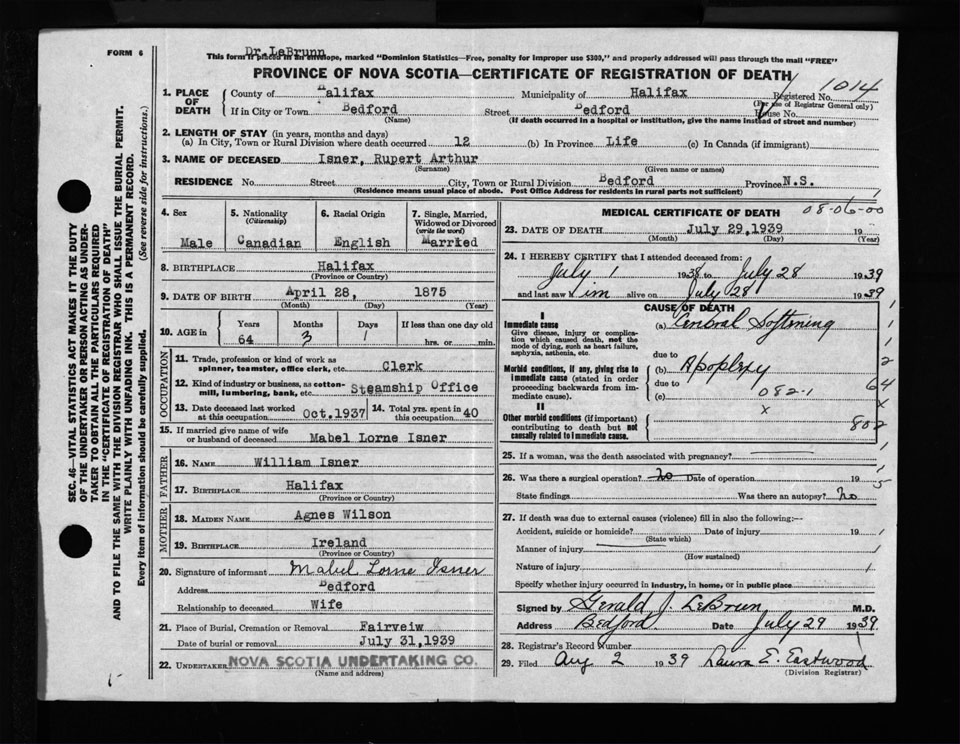 FORM 6
Dr. LeBrunn
This form if placed in an envelope, marked "Dominion Statistics—Free, penalty for improper use $300," and properly addressed will pass through the mail "FREE"
PROVINCE OF NOVA SCOTIA—CERTIFICATE OF REGISTRATION OF DEATH
1. PLACE OF DEATH County of Halifax Municipality of Halifax Registered No. 1014
(For use of Registrar General only)
If in City or Town Bedford Street Bedford House No.
(Name) (If death occurred in a hospital or institution, give the name instead of street and number)
2. LENGTH OF STAY (in years, months and days)
(a) In City, Town or Rural Division where death occurred 12 (b) In Province Life (c) In Canada (if immigrant)
3. NAME OF DECEASED Isner, Rupert Arthur
(Surname) (Given name or names)
RESIDENCE No. Street City, Town or Rural Division Bedford Province N.S.
(Residence means usual place of abode. Post Office Address for residents in rural parts not sufficient)
4. Sex 5. Nationality (Citizenship) 6. Racial Origin 7. Single, Married, Widowed or Divorced (write the word)
Male Canadian English Married
8. BIRTHPLACE Halifax
(Province or Country)
9. DATE OF BIRTH April 28, 1875
(Month) (Day) (Year)
10. AGE in Years Months Days If less than one day old
64 3 1 hrs. or min.
OCCUPATION
11. Trade, profession or kind of work as spinner, teamster, office clerk, etc. Clerk
12. Kind of industry or business, as cotton-mill, lumbering, bank, etc. Steamship Office
13. Date deceased last worked at this occupation Oct.1937 14. Total yrs. spent in this occupation 40
15. If married give name of wife or husband of deceased Mabel Lorne Isner
FATHER
16. NAME William Isner
17. BIRTHPLACE Halifax
(Province or Country)
MOTHER
18. MAIDEN NAME Agnes Wilson
19. BIRTHPLACE Ireland
(Province or Country)
20. Signature of informant Mabel Lorne Isner
Address Bedford
Relationship to deceased Wife
21. Place of Burial, Cremation or Removal Fairveiw
Date of burial or removal July 31,1939
22. UNDERTAKER NOVA SCOTIA UNDERTAKING CO.
(Name and address)
MEDICAL CERTIFICATE OF DEATH 08-06-00
23. DATE OF DEATH July 29,1939 19
(Month) (Day) (Year)
24. I HEREBY CERTIFY that I attended deceased from:
July 1 1938 to July 28 1939
and last saw him alive on July 28 1939
CAUSE OF DEATH
I
Immediate cause (a) Cerebral Softening
Give disease, injury or complication which caused death, not the mode of dying, such as heart failure, asphyxia, asthenia, etc.
due to
Morbid conditions, if any, giving rise to immediate cause (stated in order proceeding backwards from immediate cause). (b) Apoplexy
due to 64
(c) 082-1 x
x
II
Other morbid conditions (if important) contributing to death but not causally related to immediate cause. 802
25. If a woman, was the death associated with pregnancy?
26. Was there a surgical operation? no Date of operation 19
State findings Was there an autopsy? no
27. If death was due to external causes (violence) fill in also the following:—
Accident, suicide or homicide? Date of injury 19
(State which)
Manner of injury
(How sustained)
Nature of injury
Specify whether injury occurred in industry, in home, or in public place
Signed by Gerald J. LeBrun M.D.
Address Bedford. Date July 29 1939
28. Registrar's Record Number
29. Filed Aug 2 1939 Laura E. Eastwood
(Division Registrar)
SEC. 46—VITAL STATISTICS ACT MAKES IT THE DUTY
OF THE UNDERTAKER OR PERSON ACTING AS UNDER-
TAKER TO OBTAIN ALL THE PARTICULARS REQUIRED
IN THE "CERTIFICATE OF REGISTRATION OF DEATH"
AND TO FILE THE SAME WITH THE DIVISION REGISTRAR WHO SHALL ISSUE THE BURIAL PERMIT.
WRITE PLAINLY WITH UNFADING INK. THIS IS A PERMANENT RECORD.
Every item of information should be carefully supplied. (See reverse side for instructions.)